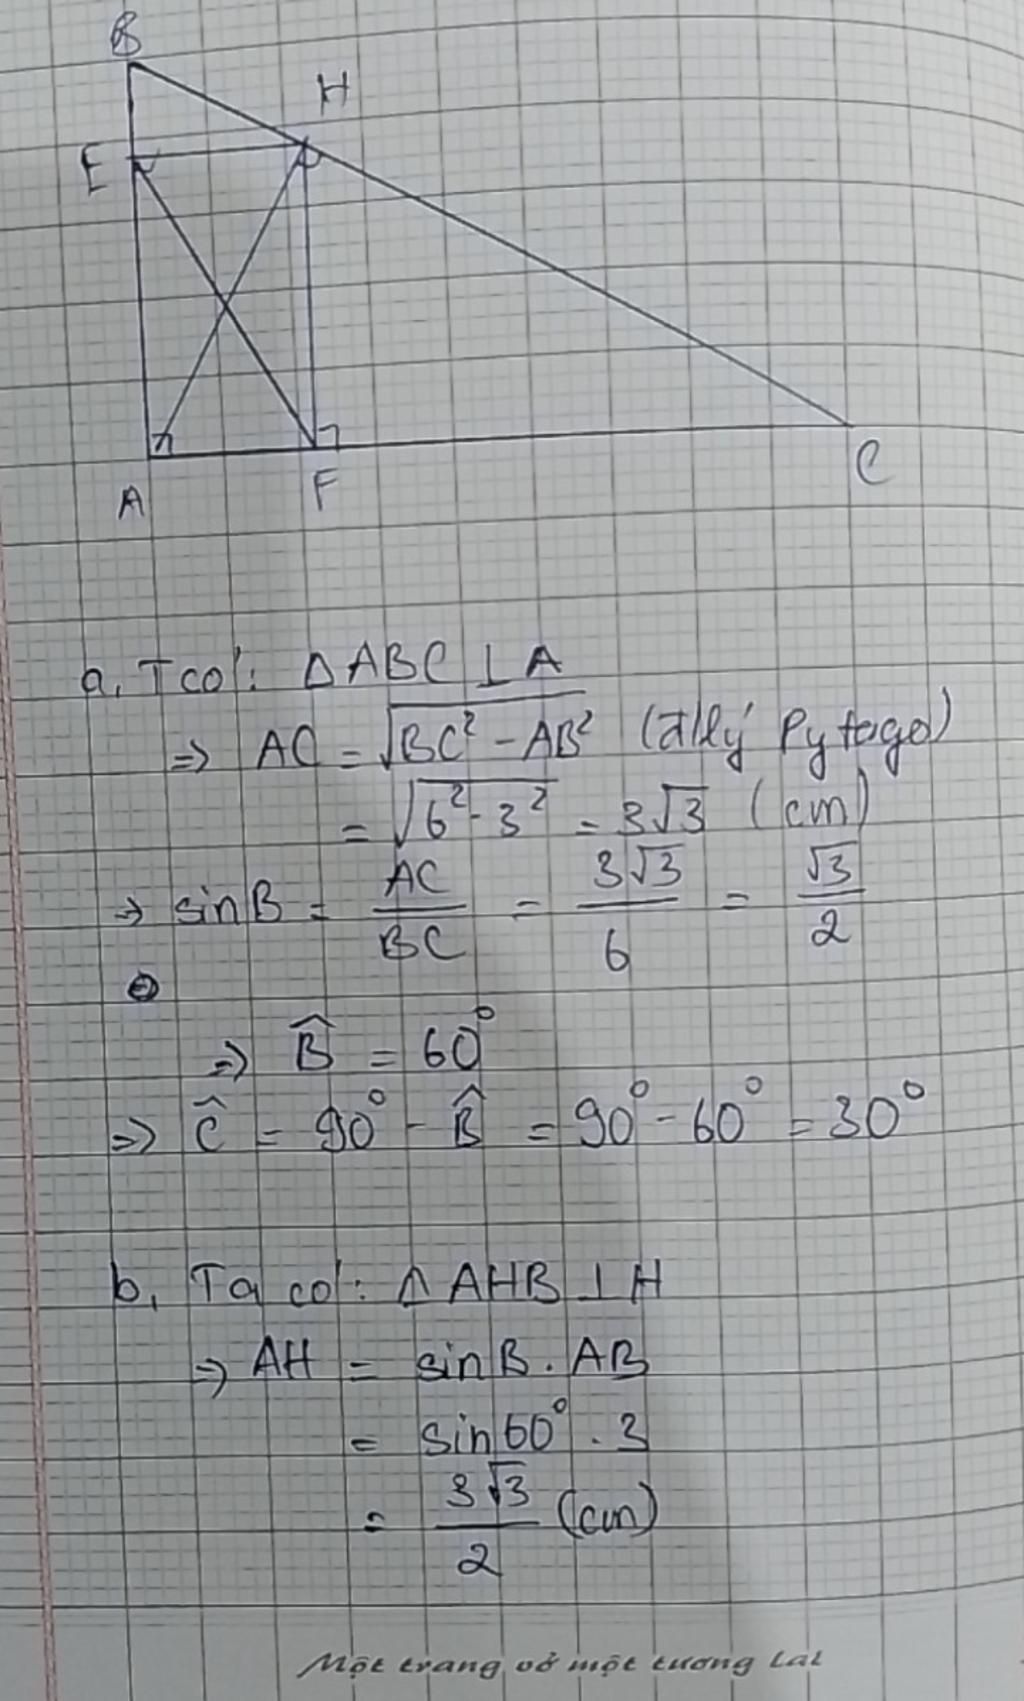 B
H
E
A
F
C
a, T có: Δ ABC ⊥ A
=> AC = √(BC² - AB²) (đlý Pytago)
= √(6² - 3²) = 3√3 (cm)
=> sin B = AC/BC = 3√3/6 = √3/2
=> B̂ = 60°
=> Ĉ = 90° - B̂ = 90° - 60° = 30°
b, Ta có: Δ AHB ⊥ H
=> AH = sin B . AB
= sin 60° . 3
= 3√3/2 (cm)
Một trang vở một tương lai